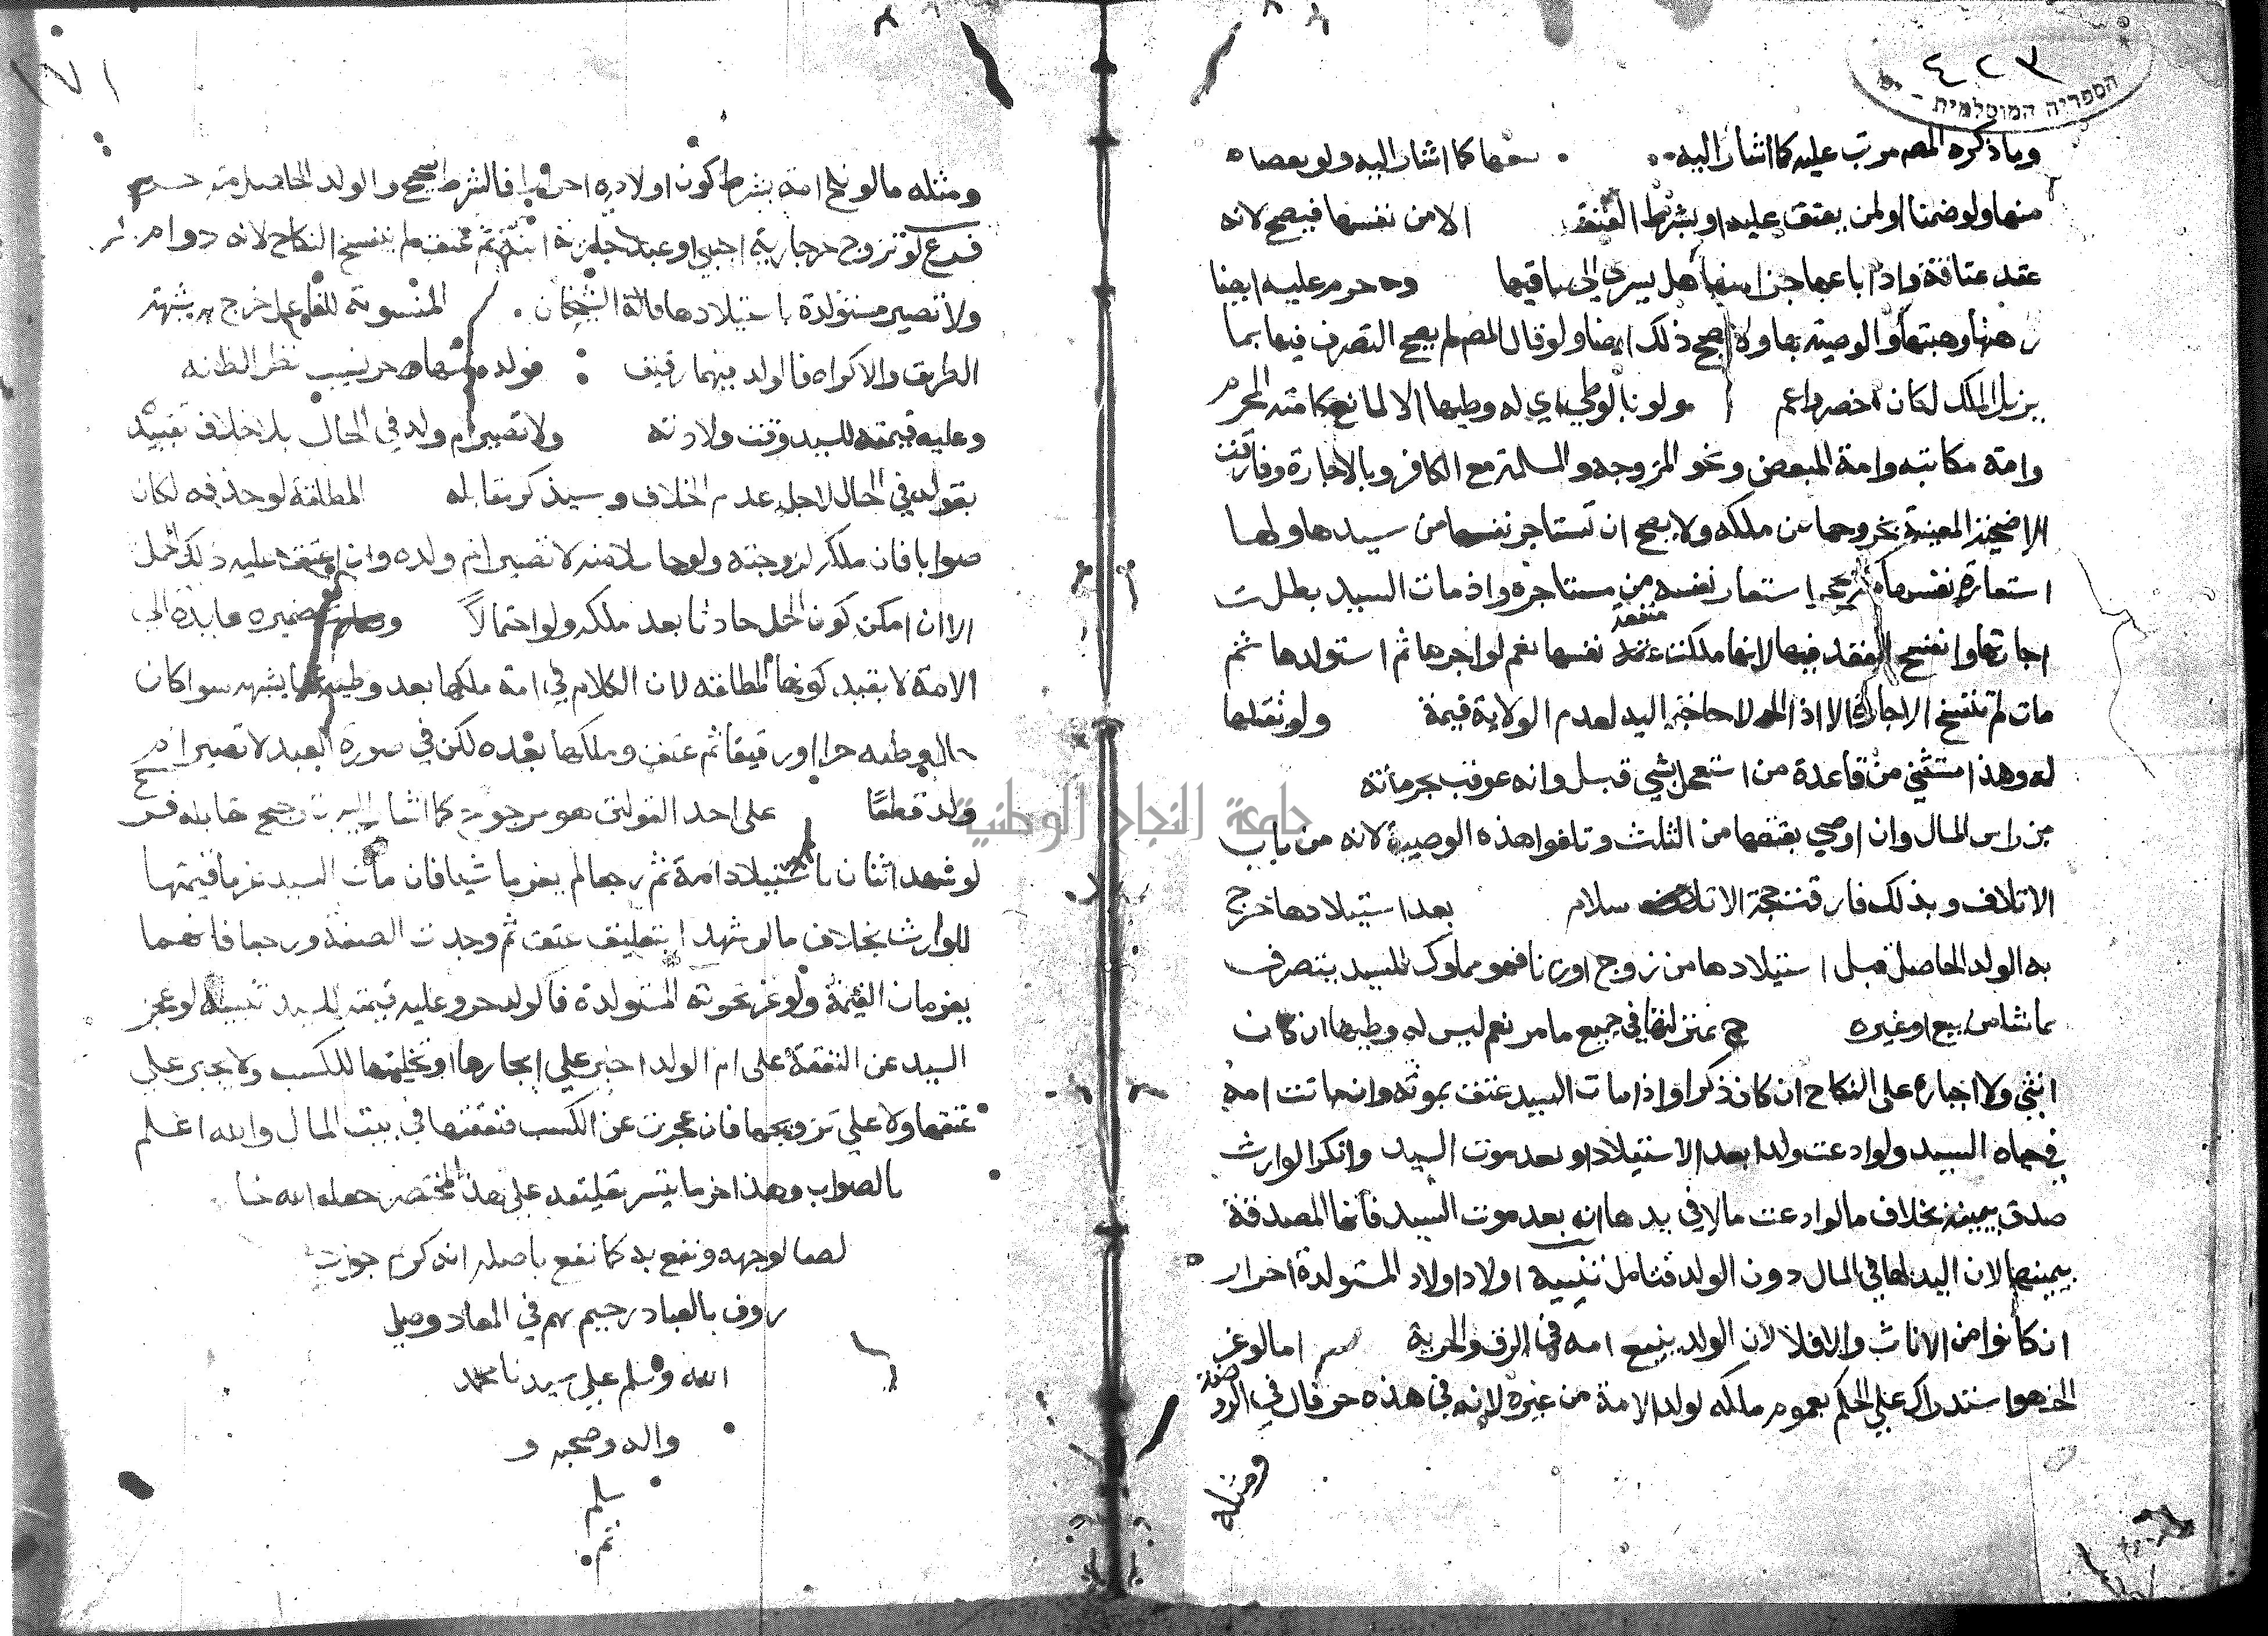 ٤٢٣
הספריה המוסלמית - יפו
وما ذكره المص مرتب عليه كما اشار اليه كما اشار اليه ولو بعضا
منها ولو ضمنا اولمن يعتق عليه او بشرط العتق الا من نفسها فيصح لانه
عقد عتاقة واذا باعها جزا منها هل يسري الى باقيها وحرم عليه ايضا
رهنها وهبتها والوصية بها ولا يصح ذلك ايضا ولو قال المص لم يصح التصرف فيها بما
يزيل الملك لكان اخصر واعم ولو بالوطي اي له وطيها الا لمانع كامته المحرم
وامة مكاتبه وامة المبعض ونحو المزوجه والمسلمة مع الكافر وبالاجارة وفارقت
الاضحية المعينة بخروجها عن ملكه ولا يصح ان تستاجر نفسها من سيدها ولها
استعارة نفسها استعار نفسه من مستاجره واذ مات السيد بطلت
اجارتها وانفسخ العقد فيها لانها ملكت منفعة نفسها نعم لو اجرها ثم استولدها ثم
مات لم تنفسخ الاجارة الا اذا لا حاجة اليه لعدم الولاية قيمة ولو بقتلها
له وهذا مستثني من قاعدة من استعجل بشي قبل وانه عوقب بحرمانه
من راس المال وان اوصي بعتقها من الثلث وتلغوا هذه الوصية لانه من باب
الاتلاف وبذلك فارقت حجة الاسلام بعد استيلادها خرج
به الولد الحاصل قبل استيلادها من زوج او زنا فهو مملوك للسيد يتصرف
بما شا من بيع او غيره بمنزلتها في جميع ما مر نعم ليس له وطيها ان كان
انثي ولا اجباره على النكاح ان كان ذكرا واذا مات السيد عتق بموته وان ماتت امه
في حياه السيد ولو ادعت ولدا بعد الاستيلاد او بعد موت السيد وانكر الوارث
صدق بيمينه بخلاف ما لو ادعت مالا في يدها انه بعد موت السيد فانها المصدقة
بيمينها لان اليد لها في المال دون الولد فتامل تنبيه اولاد اولاد المستولدة احرار
ان كانوا من الاناث والا فلا لان الولد يتبع امه في الرق والحرية اما لو غر
الخ هو استدراك علي الحكم بعموم ملكه لولد الامة من غيره لانه في هذه حر قال في الروضة
ومثله
١٧١
ومثله ما لو نكح امة بشرط كون اولاده احرارا فالشرط صحيح والولد الحاصل منه حر
فرع لو تزوج حر جارية اجنبي او عبد جارية ابنه ثم عتق لم ينفسخ النكاح لانه دوام
ولا تصير مستولدة باستيلادها قاله الشيخان المنسوبة للفاعل خرج به شبهة
الطريق والاكراه فالولد فيهما رقيق فولده منها حر نسيب نظرا لظنه
وعليه قيمته للسيد وقت ولادته ولا تصير ام ولد في الحال بلا خلاف تقييد
بقوله في الحال لاجل عدم الخلاف وسيذكر مقابله المطلقة لو حذفه لكان
صوابا فان ملكه لزوجته ولو حاملا منه لا تصير ام ولده وان عتق عليه ذلك الحمل
الا ان امكن كون الحمل حادثا بعد ملكه ولو احتمالا ضميره عايدة الى
الامة لا بقيد كونها المطلقة لان الكلام في امة ملكها بعد وطيه لها بشبهه سوا كان
حال وطيه حرا او رقيقا ثم عتق وملكها بعده لكن في صورة العبد لا تصير ام
ولد قطعا على احد القولين هو مرجوح كما اشار اليه بترجيح مقابله فرع
لو شهد اثنان باستيلاد امة ثم رجعا لم يغرما شيا فان مات السيد غرما قيمتها
للوارث بخلاف ما لو شهدا بتعليق عتق ثم وجدت الصفة ورجعا فانهما
يغرمان القيمة ولو غر بحرية المستولدة فالولد حر وعليه قيمته للسيد تنبيه لو عجز
السيد عن النفقة على ام الولد اجبر علي ايجارها او تخليتها للكسب ولا يجبر علي
عتقها ولا علي تزويجها فان عجزت عن الكسب فنفقتها في بيت المال والله اعلم
بالصواب وهذا اخر ما تيسر تعليقه على هذا المختصر جعله الله خا
لصا لوجهه ونفع به كما نفع باصله انه كريم جواد
روف بالعباد رحيم بهم في المعاد وصلى
الله وسلم علي سيدنا محمد
واله وصحبه و
سلم
تم
جامعة النجاح الوطنية